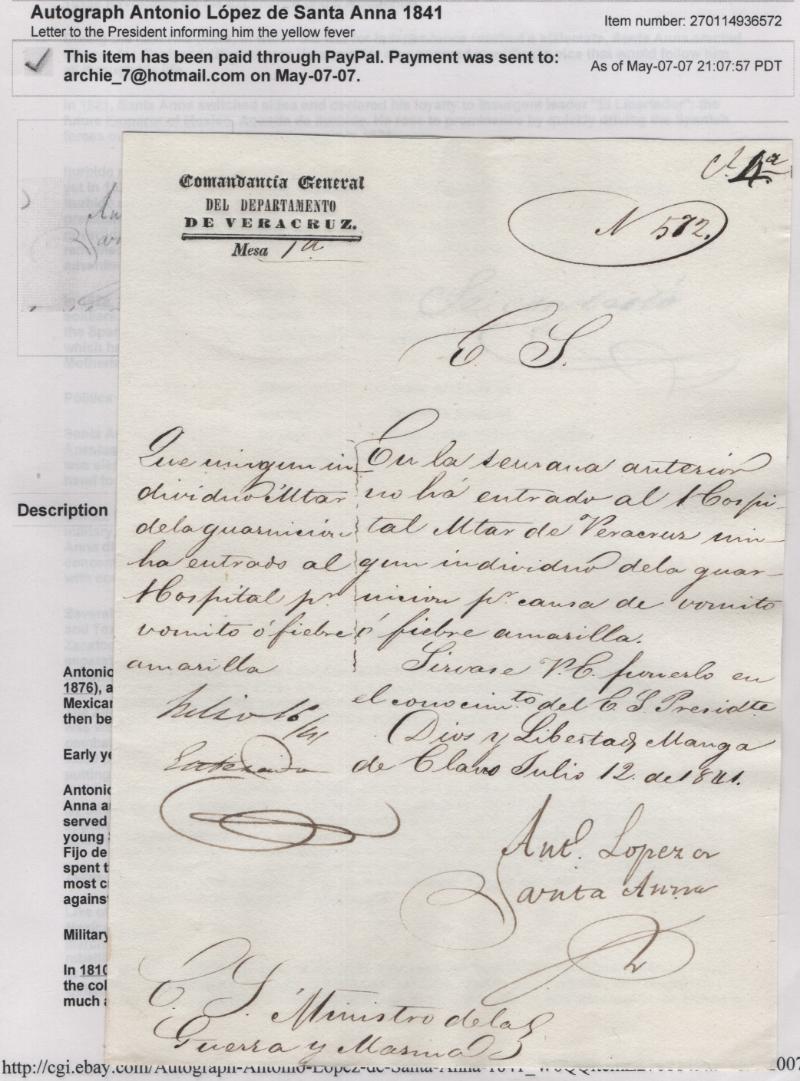 Autograph Antonio López de Santa Anna 1841
Item number: 270114936572
Letter to the President informing him the yellow fever
This item has been paid through PayPal. Payment was sent to:
archie_7@hotmail.com on May-07-07.
As of May-07-07 21:07:57 PDT
4ª
Comandancia General
DEL DEPARTAMENTO
DE VERACRUZ.
Mesa 1a
N 572.
E. S.
Que ningun in
dividuo Mtar
dela guarnicion
ha entrado al
Hospital pr
vomito ó fiebre
amarilla
Julio 16/41
Enterado
En la semana anterior
no há entrado al Hospi-
tal Mtar de Veracruz nin-
gun individuo dela guar-
nicion pr causa de vomito
ó fiebre amarilla.
Sirvase V.E. ponerlo en
el conocimto del E. S. Presidte
Dios y Libertad, Manga
de Clavo Julio 12. de 1841.
Antº Lopez de
Santa Anna
E. S. Ministro dela
Guerra y Marina
Description
Antonio
1876), a
Mexican
then be
Early ye
Antonio
Anna a
served
young
Fijo de
spent t
most c
against
Military
In 1810
the col
much a
http://cgi.ebay.com/Autograph-Antonio-Lopez-de-Santa-Anna-1841_
007